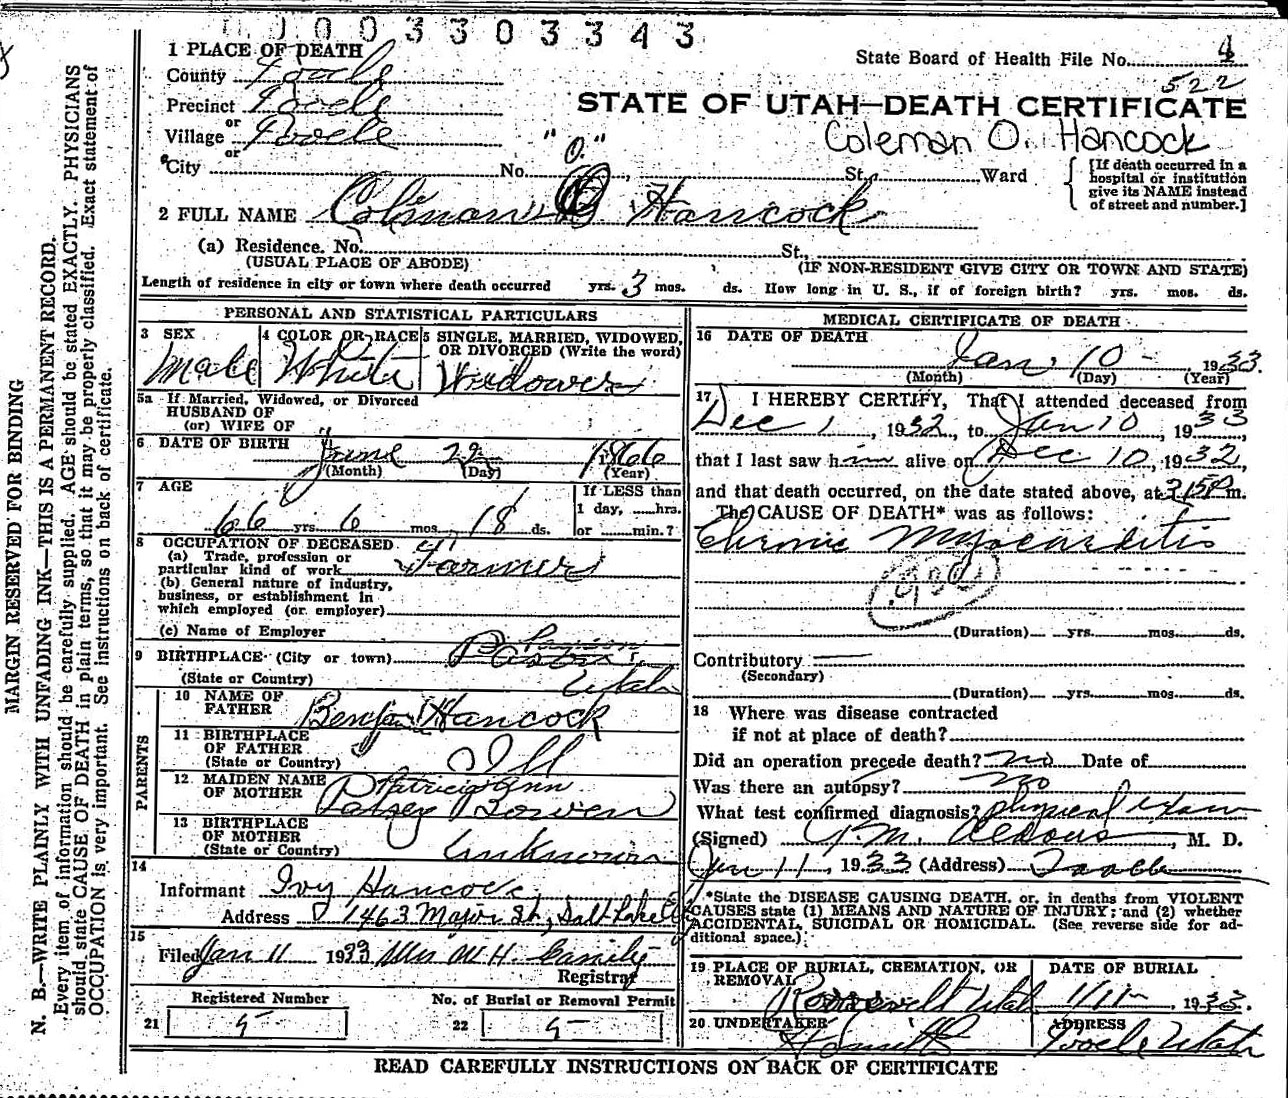 0 0 0 3 3 0 3 3 4 3
State Board of Health File No. 4
522
STATE OF UTAH—DEATH CERTIFICATE
Coleman O. Hancock
1 PLACE OF DEATH
County Tooele
Precinct Tooele
or
Village Tooele
or
City No. St. Ward
"O."
[If death occurred in a
hospital or institution
give its NAME instead
of street and number.]
2 FULL NAME Coleman Hancock
(a) Residence. No. St.,
(USUAL PLACE OF ABODE) (IF NON-RESIDENT GIVE CITY OR TOWN AND STATE)
Length of residence in city or town where death occurred yrs. 3 mos. ds. How long in U. S., if of foreign birth? yrs. mos. ds.
PERSONAL AND STATISTICAL PARTICULARS
3 SEX 4 COLOR OR RACE 5 SINGLE, MARRIED, WIDOWED,
OR DIVORCED (Write the word)
Male White Widower
5a If Married, Widowed, or Divorced
HUSBAND OF
(or) WIFE OF
6 DATE OF BIRTH
June 22 1866
(Month) (Day) (Year)
7 AGE If LESS than
1 day, hrs.
66 yrs. 6 mos. 18 ds. or min.?
8 OCCUPATION OF DECEASED
(a) Trade, profession or
particular kind of work Farmer
(b) General nature of industry,
business, or establishment in
which employed (or employer)
(c) Name of Employer
Payson
9 BIRTHPLACE (City or town)
(State or Country) Utah
PARENTS
10 NAME OF
FATHER Benjamin Hancock
11 BIRTHPLACE
OF FATHER
(State or Country) Ill
12 MAIDEN NAME Patricia Ann
OF MOTHER Patsey Bowen
13 BIRTHPLACE
OF MOTHER
(State or Country) Unknown
14
Informant Ivy Hancock
Address 1463 Major St., Salt Lake City
15
Filed Jan 11 1933 Mrs W. H.
Registrar
Registered Number No. of Burial or Removal Permit
21 5 22 5
MEDICAL CERTIFICATE OF DEATH
16 DATE OF DEATH
Jan 10 - 1933.
(Month) (Day) (Year)
17 I HEREBY CERTIFY, That I attended deceased from
Dec 1, 1932, to Jan 10, 1933,
that I last saw him alive on Dec 10, 1932,
and that death occurred, on the date stated above, at m.
The CAUSE OF DEATH* was as follows:
Chronic Myocarditis
(Duration) yrs. mos. ds.
Contributory
(Secondary)
(Duration) yrs. mos. ds.
18 Where was disease contracted
if not at place of death?
Did an operation precede death? no Date of
Was there an autopsy? no
What test confirmed diagnosis? physical exam
(Signed) J. M. Aldous, M. D.
Jan 11, 1933 (Address) Tooele
*State the DISEASE CAUSING DEATH, or, in deaths from VIOLENT
CAUSES state (1) MEANS AND NATURE OF INJURY; and (2) whether
ACCIDENTAL, SUICIDAL OR HOMICIDAL. (See reverse side for ad-
ditional space.)
19 PLACE OF BURIAL, CREMATION, OR
REMOVAL
Roosevelt Utah
DATE OF BURIAL
1/11- 1933.
20 UNDERTAKER
ADDRESS
Tooele Utah
READ CAREFULLY INSTRUCTIONS ON BACK OF CERTIFICATE
MARGIN RESERVED FOR BINDING
N. B.—WRITE PLAINLY WITH UNFADING INK—THIS IS A PERMANENT RECORD.
Every item of information should be carefully supplied. AGE should be stated EXACTLY. PHYSICIANS
should state CAUSE OF DEATH in plain terms, so that it may be properly classified. Exact statement of
OCCUPATION is very important. See instructions on back of certificate.